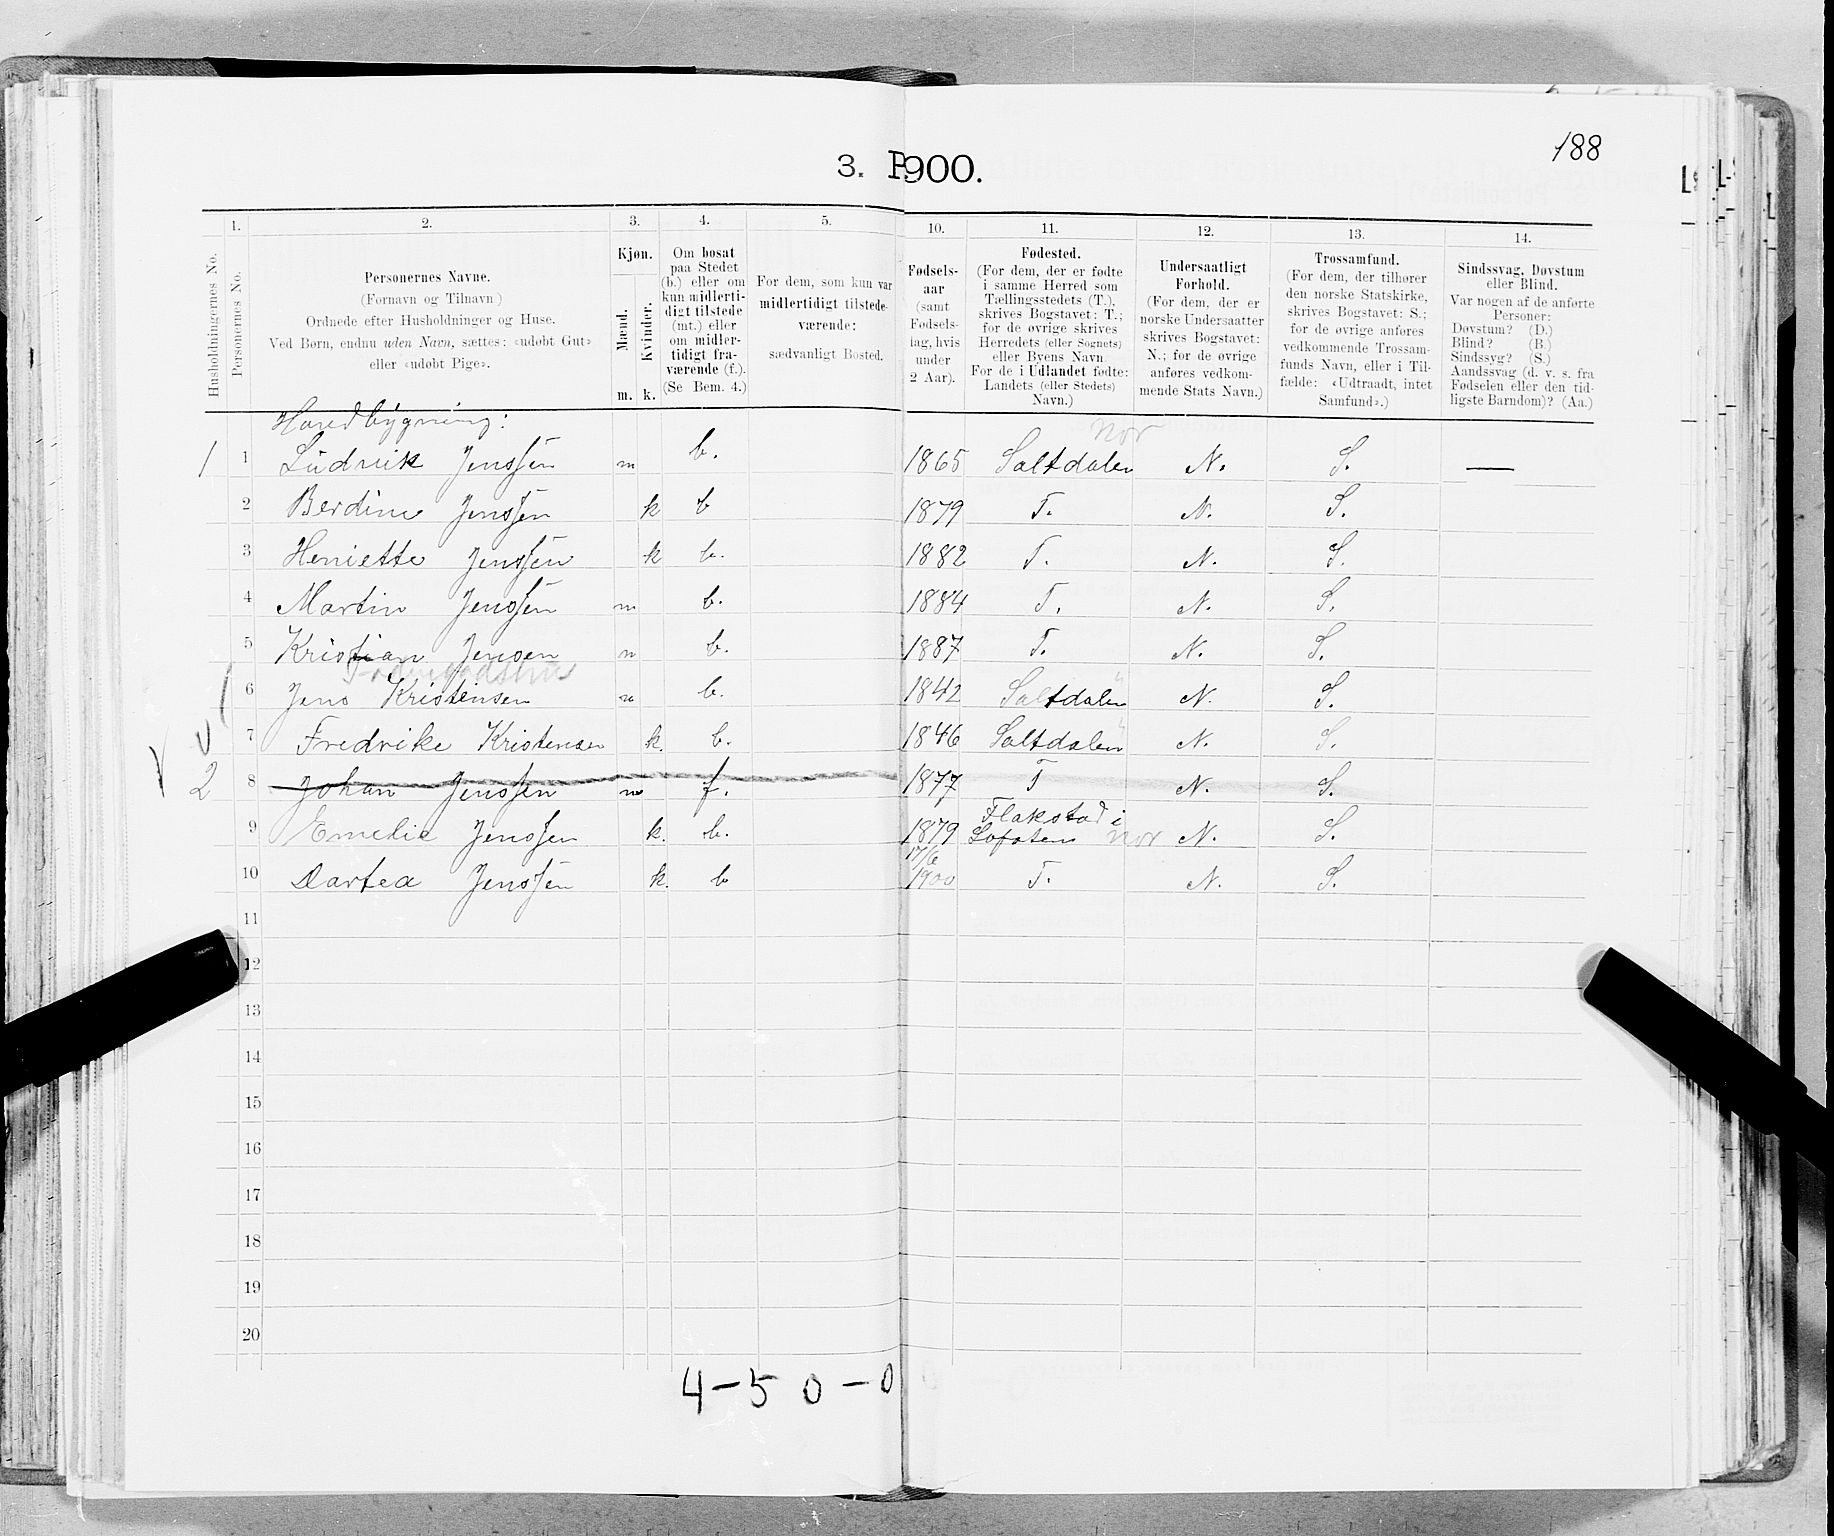 188
3. P.
900.
Husholdningernes No.
1.
Personernes No.
2.
Personernes Navne.
(Fornavn og Tilnavn)
Ordnede efter Husholdninger og Huse.
Ved Børn, endnu uden Navn, sættes: «udøbt Gut»
eller «udøbt Pige».
3.
Kjøn.
Mænd.
Kvinder.
m. k.
4.
Om bosat
paa Stedet
(b.) eller om
kun midlerti-
digt tilstede
(mt.) eller
om midler-
tidigt fra-
værende (f.).
(Se Bem. 4.)
5.
For dem, som kun var
midlertidigt tilstede-
værende:
sædvanligt Bosted.
10.
Fødsels-
aar
(samt
Fødsels-
dag, hvis
under
2 Aar).
11.
Fødested.
(For dem, der er fødte
i samme Herred som
Tællingsstedets (T.),
skrives Bogstavet: T.;
for de øvrige skrives
Herredets (eller Sognets)
eller Byens Navn.
For de i Udlandet fødte:
Landets (eller Stedets)
Navn.)
12.
Undersaatligt
Forhold.
(For dem, der er
norske Undersaatter
skrives Bogstavet:
N.; for de øvrige
anføres vedkom-
mende Stats Navn.)
13.
Trossamfund.
(For dem, der tilhører
den norske Statskirke,
skrives Bogstavet: S.;
for de øvrige anføres
vedkommende Trossam-
funds Navn, eller i Til-
fælde: «Udtraadt, intet
Samfund».)
14.
Sindssvag, Døvstum
eller Blind.
Var nogen af de anførte
Personer:
Døvstum? (D.)
Blind? (B.)
Sindssyg? (S.)
Aandssvag (d. v. s. fra
Fødselen eller den tid-
ligste Barndom)? (Aa.)
Hovedbygning:
nor
1 1 Ludvik Jenssen m b. 1865 Saltdalen N. S. —
2 Berdine Jenssen k b 1879 T. N. S.
3 Heniette Jenssen k b. 1882 T. N. S.
4 Martin Jenssen m b. 1884 T. N. S.
5 Kristian Jensen m b. 1887 T. N. S.
6 Jens Kristensen m b. 1842 Saltdalen N. S.
7 Fredrike Kristensen k. b. 1846 Saltdalen N. S.
2 8 Johan Jenssen m f. 1877 T N. S.
9 Emelie Jenssen k. b. 1879 Flakstad i
Lofoten nor N. S.
10 Dartea Jenssen k. b 17/6
1900 T. N. S.
11
12
13
14
15
16
17
18
19
20
4-5 0-0